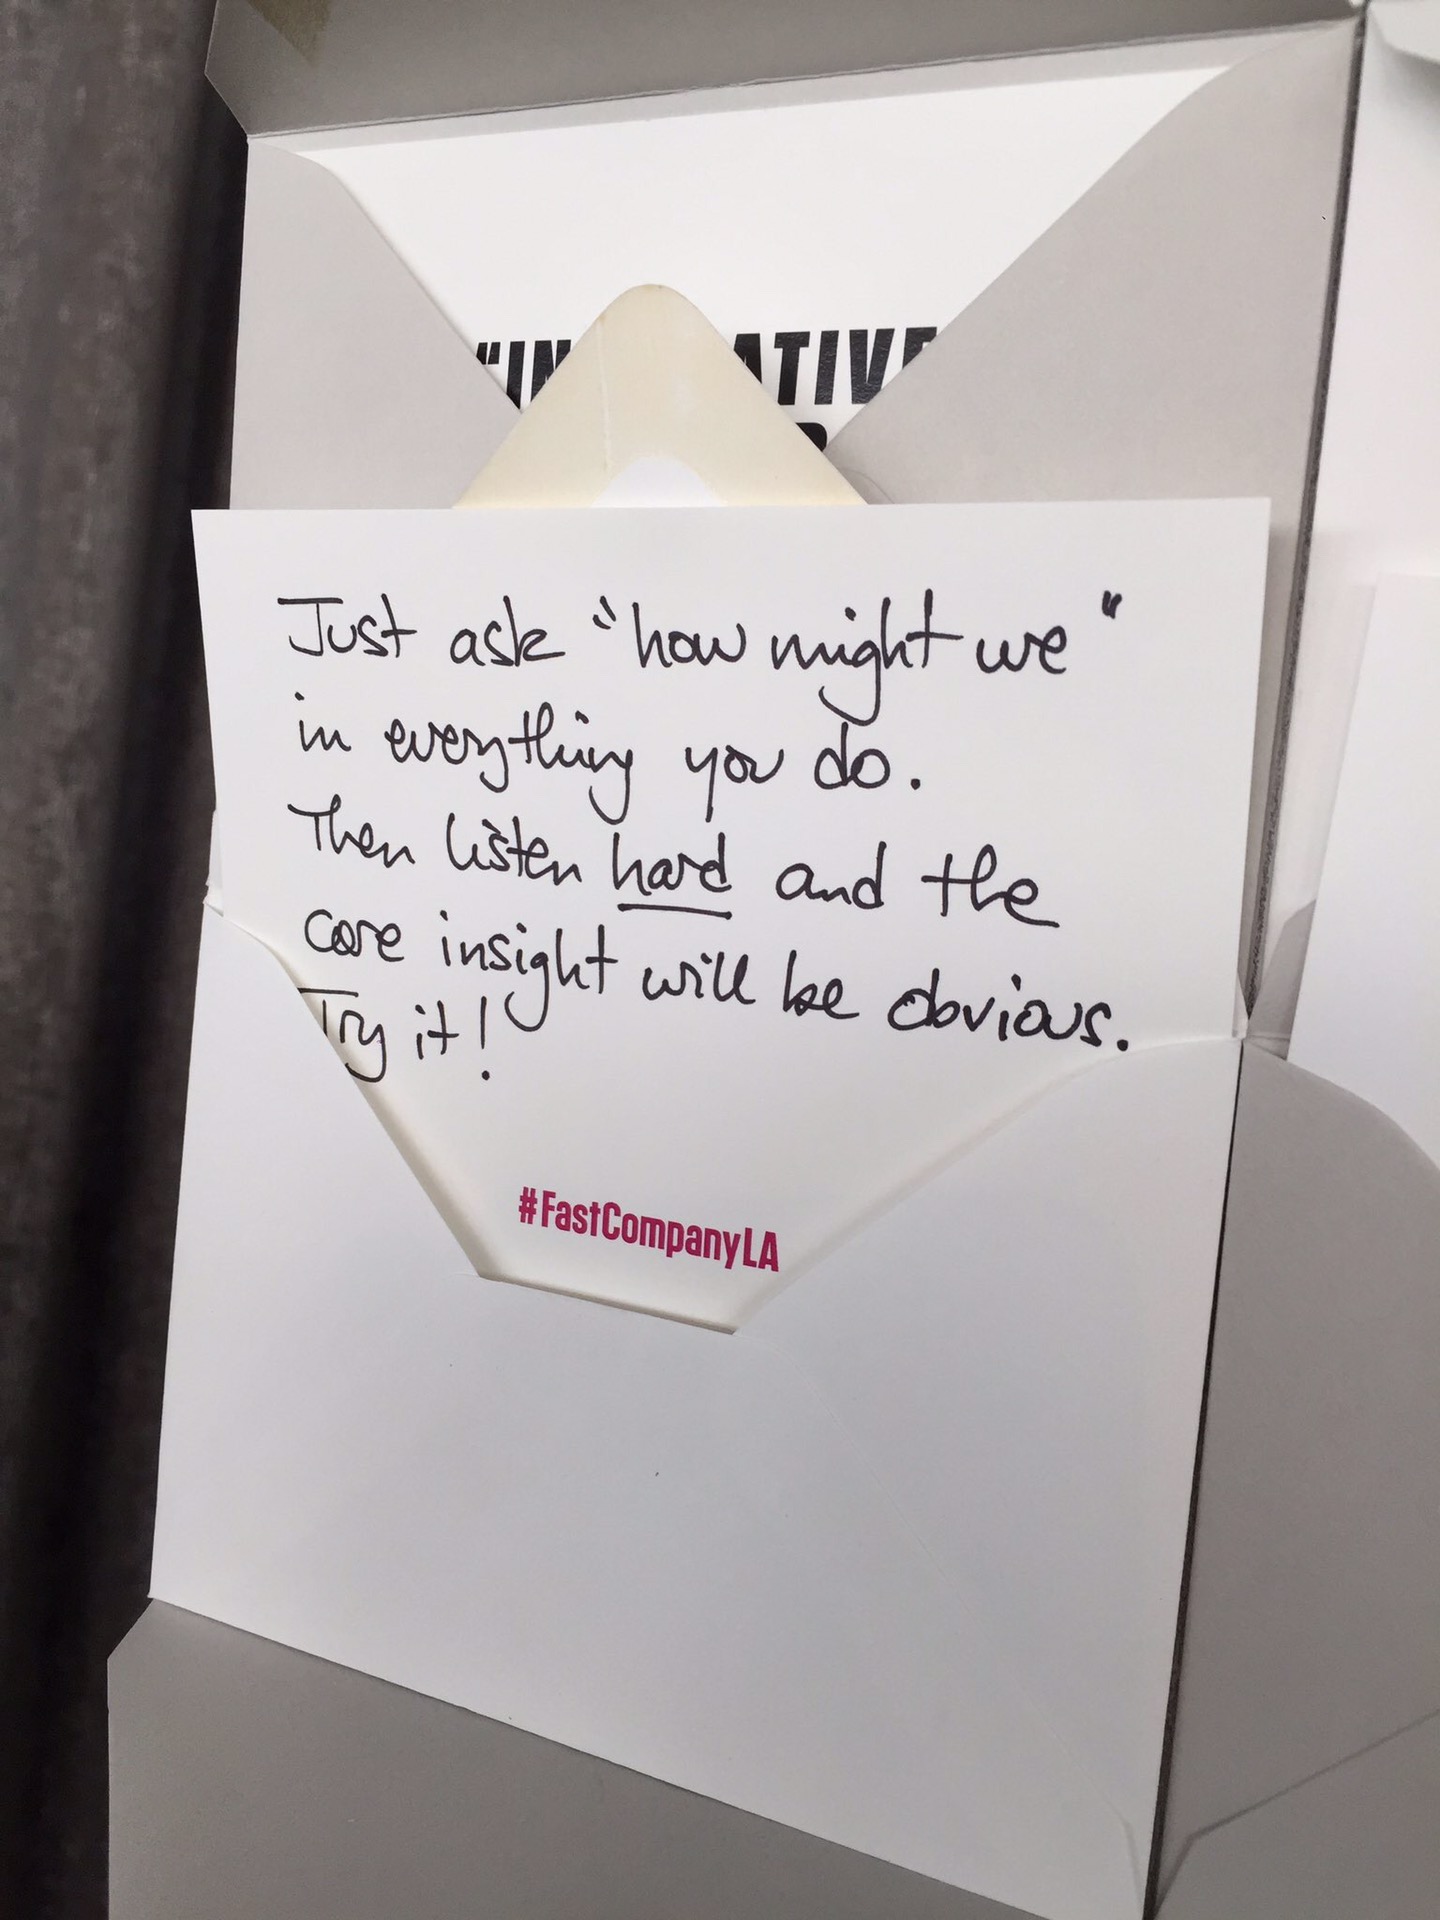 Just ask "how might we"
in everything you do.
Then listen hard and the
core insight will be obvious.
Try it!
#FastCompanyLA